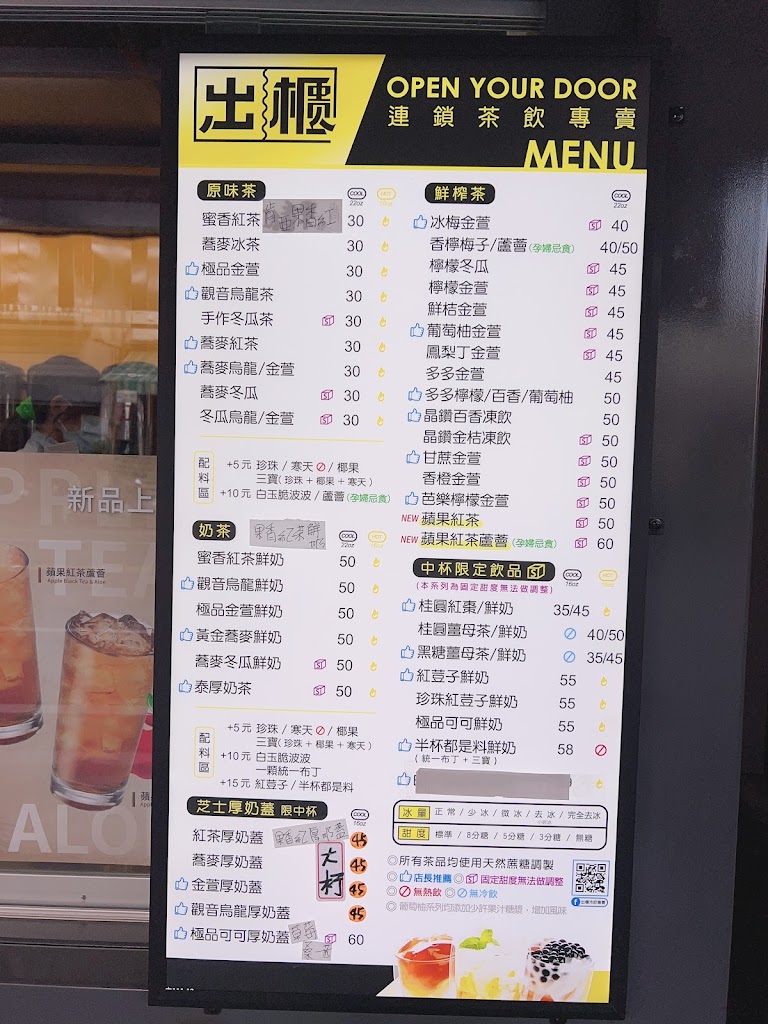 出櫃
OPEN YOUR DOOR
連鎖茶飲專賣
MENU
原味茶 COOL 22oz HOT
蜜香紅茶 果香紅 30
蕎麥冰茶 30
極品金萱 30
觀音烏龍茶 30
手作冬瓜茶 30
蕎麥紅茶 30
蕎麥烏龍/金萱 30
蕎麥冬瓜 30
冬瓜烏龍/金萱 30
配料區
+5元 珍珠 / 寒天 / 椰果
三寶(珍珠+椰果+寒天)
+10元 白玉脆波波 / 蘆薈(孕婦忌食)
奶茶 果香紅茶鮮奶 COOL 22oz HOT
蜜香紅茶鮮奶 50
觀音烏龍鮮奶 50
極品金萱鮮奶 50
黃金蕎麥鮮奶 50
蕎麥冬瓜鮮奶 50
泰厚奶茶 50
配料區
+5元 珍珠 / 寒天 / 椰果
三寶(珍珠+椰果+寒天)
+10元 白玉脆波波
一顆統一布丁
+15元 紅荳子 / 半杯都是料
芝士厚奶蓋 限中杯 COOL 16oz
紅茶厚奶蓋 果香紅厚奶蓋 45
蕎麥厚奶蓋 45
大杯
金萱厚奶蓋 45
觀音烏龍厚奶蓋 45
極品可可厚奶蓋 60
鮮榨茶 COOL 22oz
冰梅金萱 40
香檸梅子/蘆薈(孕婦忌食) 40/50
檸檬冬瓜 45
檸檬金萱 45
鮮桔金萱 45
葡萄柚金萱 45
鳳梨丁金萱 45
多多金萱 45
多多檸檬/百香/葡萄柚 50
晶鑽百香凍飲 50
晶鑽金桔凍飲 50
甘蔗金萱 50
香橙金萱 50
芭樂檸檬金萱 50
NEW 蘋果紅茶 50
NEW 蘋果紅茶蘆薈(孕婦忌食) 60
中杯限定飲品 COOL 16oz HOT
(本系列為固定甜度無法做調整)
桂圓紅棗/鮮奶 35/45
桂圓薑母茶/鮮奶 40/50
黑糖薑母茶/鮮奶 35/45
紅荳子鮮奶 55
珍珠紅荳子鮮奶 55
極品可可鮮奶 55
半杯都是料鮮奶 58
(統一布丁+三寶)
冰量 正常 / 少冰 / 微冰 / 去冰 / 完全去冰
甜度 標準 / 8分糖 / 5分糖 / 3分糖 / 無糖
◎所有茶品均使用天然蔗糖調製
◎店長推薦◎固定甜度無法做調整
◎無熱飲◎無冷飲
◎葡萄柚系列均添加少許果汁糖漿，增加風味
新品上
蘋果紅茶蘆薈
Apple Black Tea & Aloe
TEA
ALO